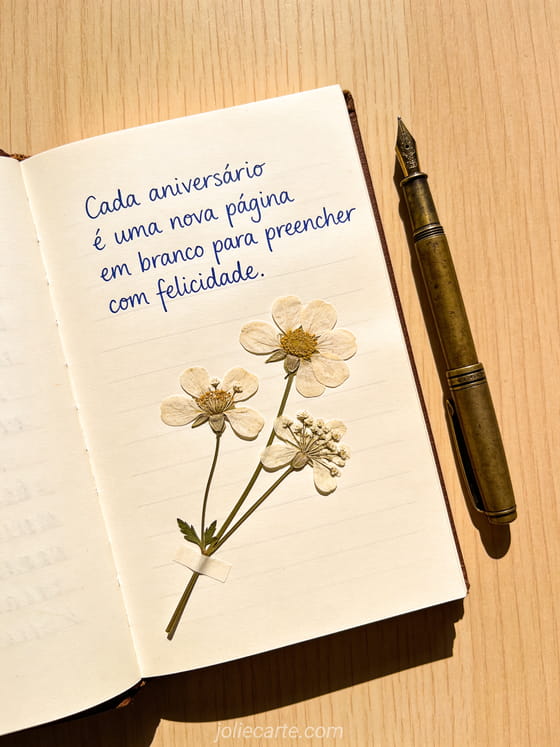 Cada aniversário
é uma nova página
em branco para preencher
com felicidade.
joliecarte.com